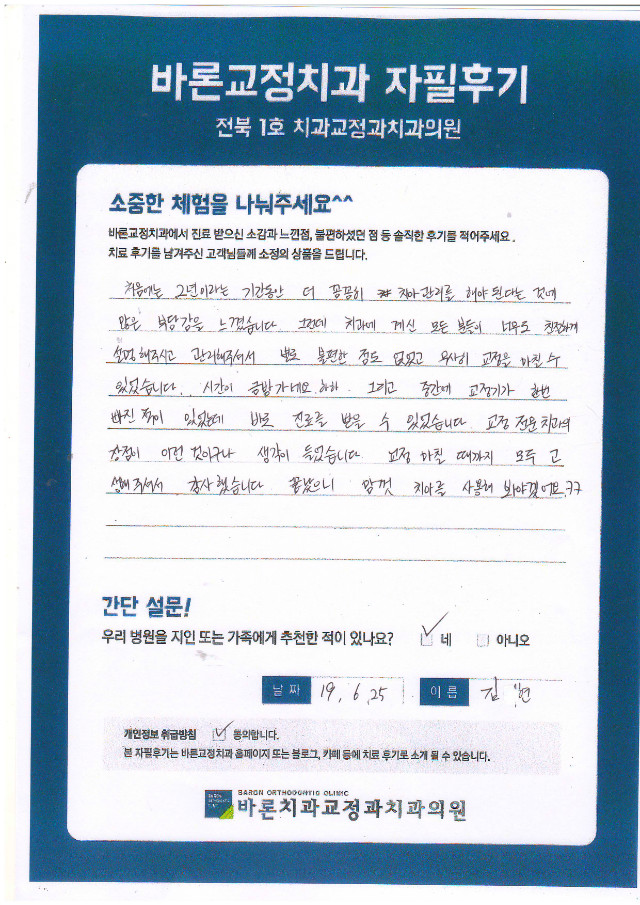 바론교정치과 자필후기
전북 1호 치과교정과치과의원
소중한 체험을 나눠주세요^^
바론교정치과에서 진료 받으신 소감과 느낀점, 불편하셨던 점 등 솔직한 후기를 적어주세요.
치료 후기를 남겨주신 고객님들께 소정의 상품을 드립니다.
처음에는 2년이라는 기간동안 더 꼼꼼히 치아관리를 해야 된다는 것에
많은 부담감을 느꼈습니다. 그런데 치과에 계신 모든 분들이 너무도 친절하게
설명해주시고 관리해주셔서 별로 불편한 점도 없었고 무사히 교정을 마칠 수
있었습니다.. 시간이 금방가네요. 하하. 그리고 중간에 교정기가 한번
빠진 적이 있었는데 바로 진료를 받을 수 있었습니다. 교정 전문 치과의
장점이 이런 것이구나 생각이 들었습니다. 교정 마칠 때까지 모두 고
생해주셔서 감사했습니다 끝났으니 맘껏 치아를 사용해 봐야겠어요.ㅋㅋ
간단 설문!
우리 병원을 지인 또는 가족에게 추천한 적이 있나요? 네 아니오
날짜 19. 6. 25 이름 김 현
개인정보 취급방침 동의합니다.
본 자필후기는 바론교정치과 홈페이지 또는 블로그, 카페 등에 치료 후기로 소개 될 수 있습니다.
BARON ORTHODONTIC CLINIC
바론치과교정과치과의원